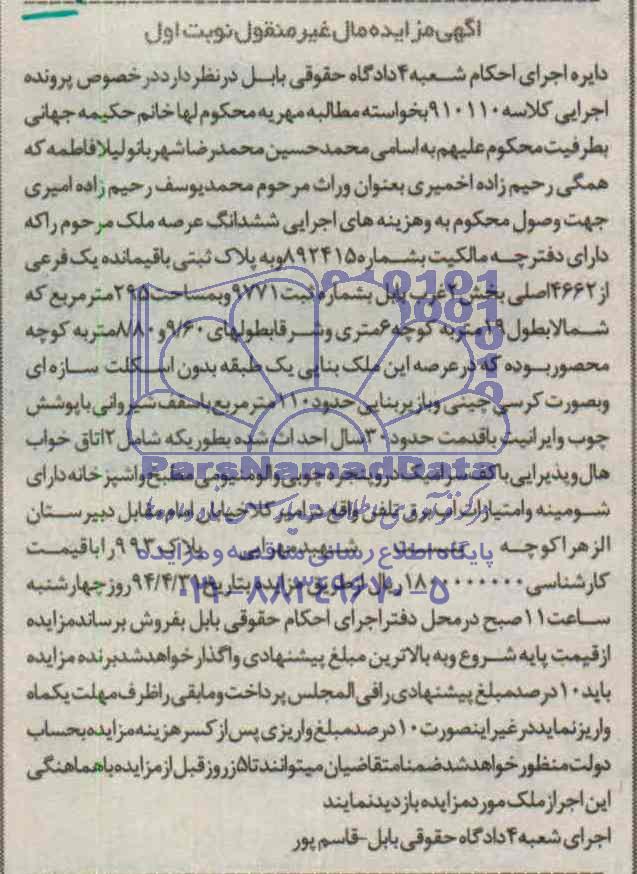 آگهی مزایده مال غیر منقول نوبت اول
دایره اجرای احکام شعبه ۴ دادگاه حقوقی بابل در نظر دارد در خصوص پرونده
اجرایی کلاسه ۹۱۰۱۱۰ بخواسته مطالبه مهریه محکوم لها خانم حکیمه جهانی
بطرفیت محکوم علیهم به اسامی محمدحسین محمدرضا شهربانو لیلا فاطمه که
همگی رحیم زاده اخمیری بعنوان وراث مرحوم محمدیوسف رحیم زاده امیری
جهت وصول محکوم به وهزینه های اجرایی ششدانگ عرصه ملک مرحوم راکه
دارای دفترچه مالکیت بشماره ۸۹۲۴۱۵ وبه پلاک ثبتی باقیمانده یک فرعی
از ۴۶۶۲ اصلی بخش ۲ غرب بابل بشماره ثبت ۹۷۷۱ وبمساحت ۲۹۵ متر مربع که
شمالا بطول ۱۹ متر به کوچه ۶ متری وشرقا بطولهای ۹/۶۰ و ۸/۸۰ متر به کوچه
محصور بوده که در عرصه این ملک بنایی یک طبقه بدون اسکلت سازه ای
وبصورت کرسی چینی وبازیربنایی حدود ۱۱۰ متر مربع باسقف شیروانی باپوشش
چوب وایرانیت باقدمت حدود ۳۰ سال احداث شده بطوریکه شامل ۲ اتاق خواب
هال وپذیرایی باکف سرامیک درو پنجره چوبی والومنیومی مطبخ واشپزخانه دارای
شومینه وامتیازات اب برق تلفن واقع در امیرکلا خیابان امام مقابل دبیرستان
الزهرا کوچه شهید پلاک ۹۹۳ را باقیمت
کارشناسی ۱۸۰۰۰۰۰۰۰۰ ریال از طریق مزایده بتاریخ ۹۴/۴/۳ روز چهارشنبه
ساعت ۱۱ صبح در محل دفتر اجرای احکام حقوقی بابل بفروش برساند مزایده
از قیمت پایه شروع وبه بالاترین مبلغ پیشنهادی واگذار خواهد شد برنده مزایده
باید ۱۰ درصد مبلغ پیشنهادی را فی المجلس پرداخت ومابقی را ظرف مهلت یکماه
واریز نماید در غیر اینصورت ۱۰ درصد مبلغ واریزی پس از کسر هزینه مزایده بحساب
دولت منظور خواهد شد ضمنا متقاضیان میتوانند تا ۵ زروز قبل از مزایده با هماهنگی
این اجرا از ملک مورد مزایده بازدید نمایند
اجرای شعبه ۴ دادگاه حقوقی بابل - قاسم پور
ParsNamadData
پایگاه اطلاع رسانی مناقصه و مزایده
۰۲۱-۸۸۳۴۹۶۷۰-۵